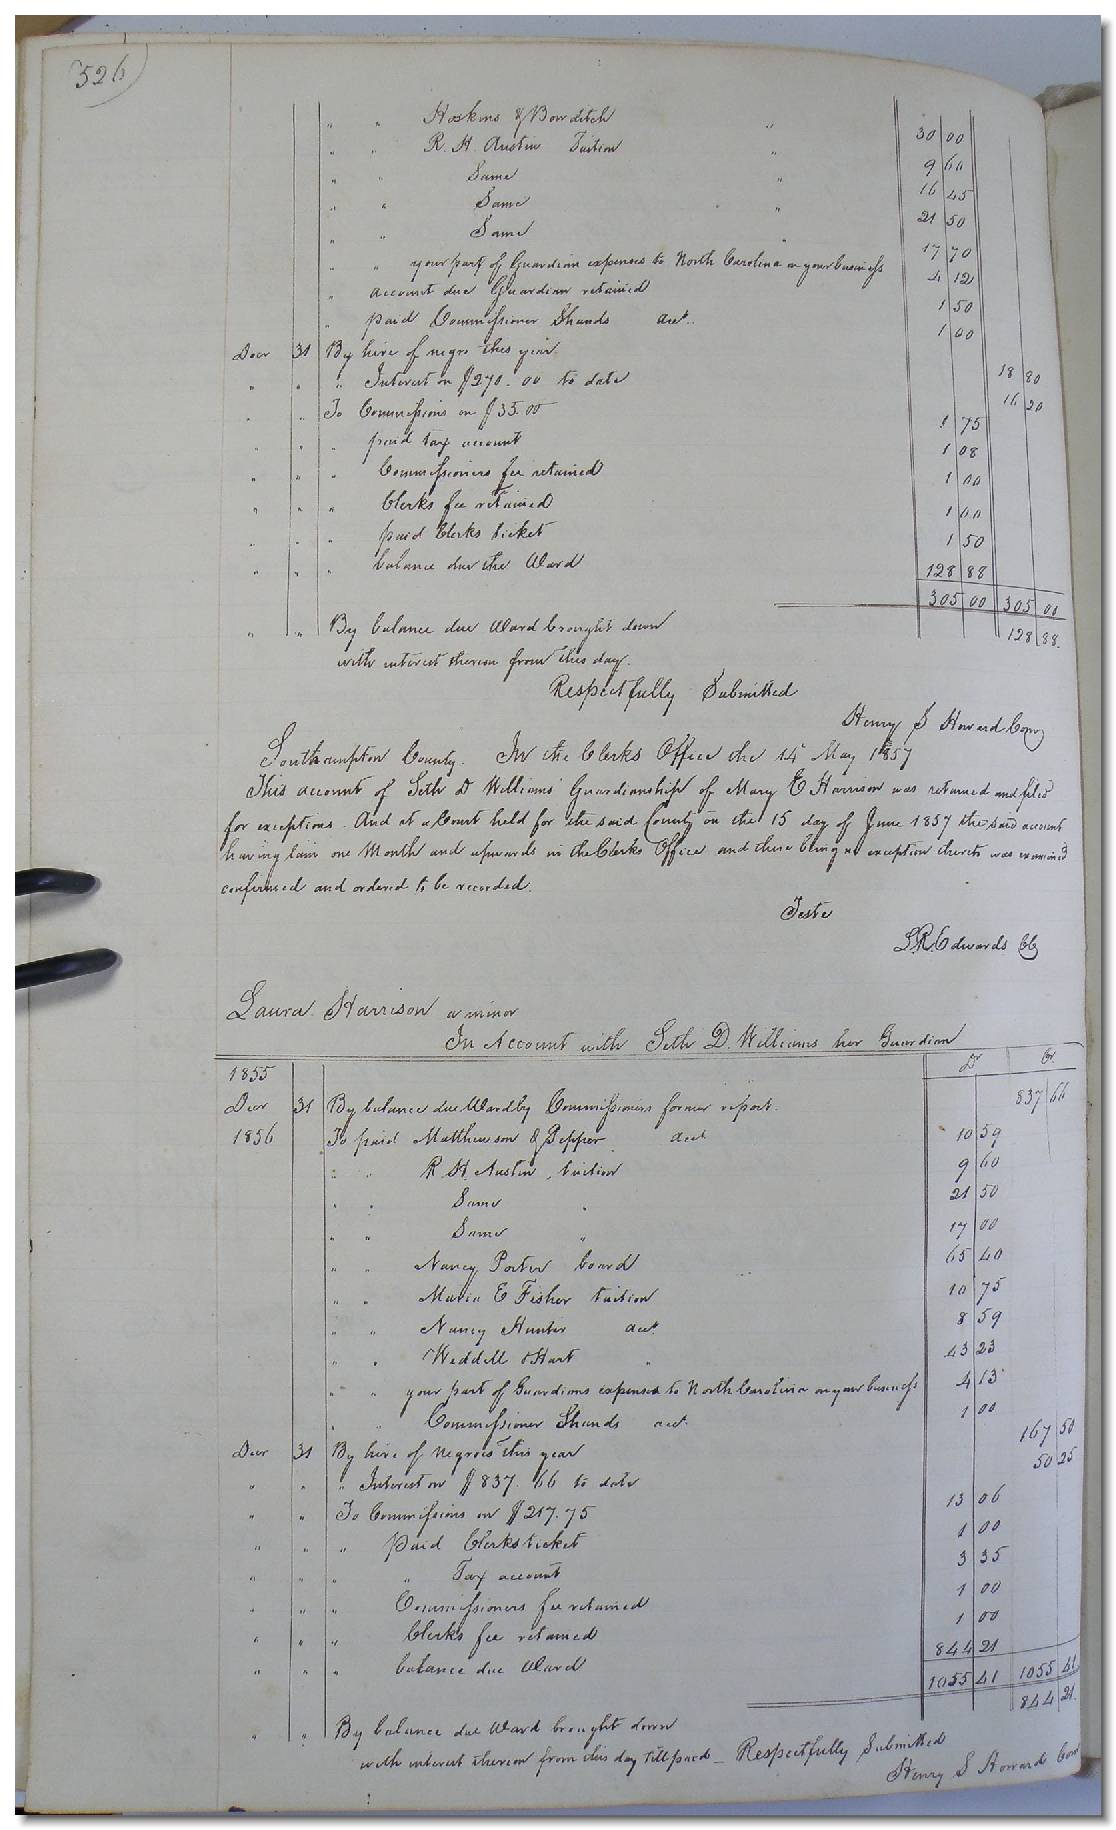 526
" " Hoskins & Bowditch " 30 00
" " R. H. Austin Tuition " 9 60
" " Same " 16 45
" " Same " 21 50
" " Same " 17 70
" " your part of Guardian expenses to North Carolina on your business 4 12
" account due Guardian retained 1 50
" paid Commissioner Shands acct. 1 00
Decr 31 By hire of negro this year 18 80
" " " Interest on $270.00 to date 16 20
" " To Commissions on $35.00 1 75
" " " paid tax account 1 08
" " " Commissioners fee retained 1 00
" " " Clerks fee retained 1 00
" " " paid Clerks ticket 1 50
" " " balance due the Ward 128 88
305 00 305 00
" " By balance due Ward brought down 128 88
with interest thereon from this day.
Respectfully Submitted
Henry S Howard Comr
Southampton County. In the Clerks Office the 14 May 1857
This account of Seth D Williams Guardianship of Mary E Harrison was returned and filed
for exceptions. And at a Court held for the said County on the 15 day of June 1857 the said account
having lain one Month and upwards in the Clerks Office and there being no exception thereto was examined
confirmed and ordered to be recorded.
Teste
L R Edwards CC
Laura Harrison a minor
In Account with Seth D. Williams her Guardian
1855 Dr Cr.
Decr 31 By balance due Ward by Commissioners former report. 837 66
1856 To paid Matthewson & Pepper acct 10 59
" " R. H. Austin, tuition 9 60
" " Same " 21 50
" " Same " 17 00
" " Nancy Porter board 65 40
" " Maria E Fisher tuition 10 75
" " Nancy Hunter acct 8 59
" " Weddell & Hart " 43 23
" " your part of Guardians expenses to North Carolina on your business 4 13
" " Commissioner Shands acct. 1 00
Decr 31 By hire of Negroes this year 167 50
" " " Interest on $837.66 to date 50 25
" " To Commissions on $217.75 13 06
" " " paid Clerks ticket 1 00
" " " " Tax account 3 35
" " " Commissioners fee retained 1 00
" " " Clerks fee retained 1 00
" " " balance due Ward 844 21
1055 41 1055 41
" " By balance due Ward brought down 844 21.
with interest thereon from this day till paid – Respectfully Submitted
Henry S Howard Com